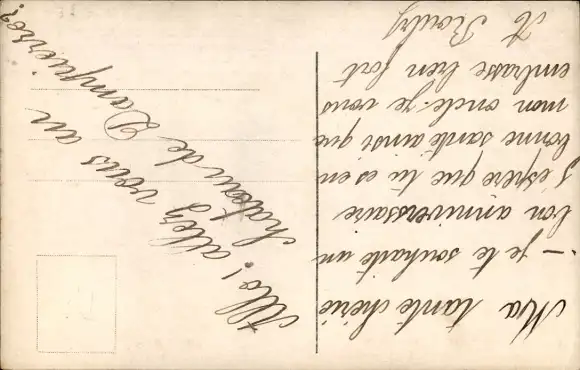 Ma tante chérie
– je te souhaite un
bon anniversaire
J'espère que tu es en
bonne santé ainsi que
mon oncle. je vous
embrasse bien fort
A Rouby
Allo! allez vous au
chateau de Dampierre?